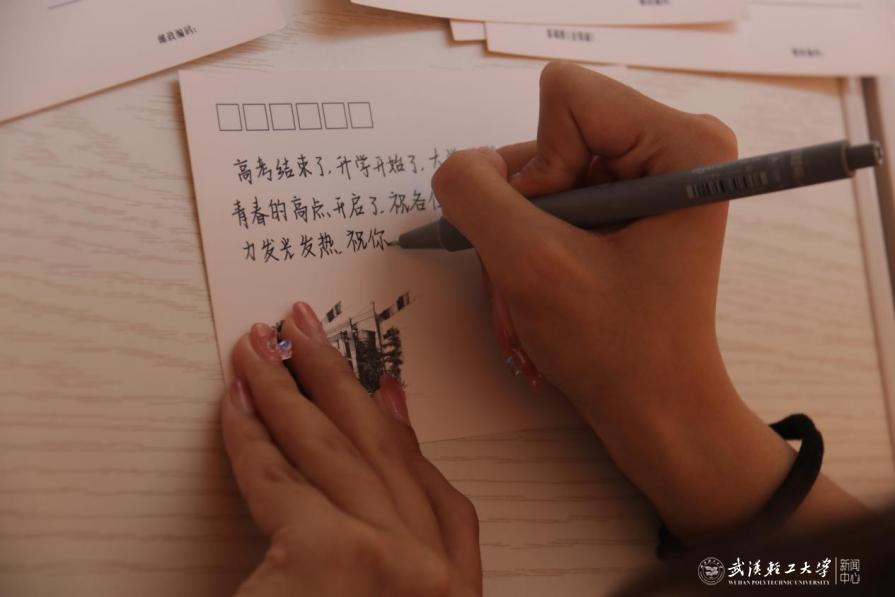 邮政编码:
邮政编码:
高考结束了,升学开始了,大学
青春的高点、开启了.祝各位
力发光发热、祝你
武汉轻工大学
WUHAN POLYTECHNIC UNIVERSITY
新闻
中心